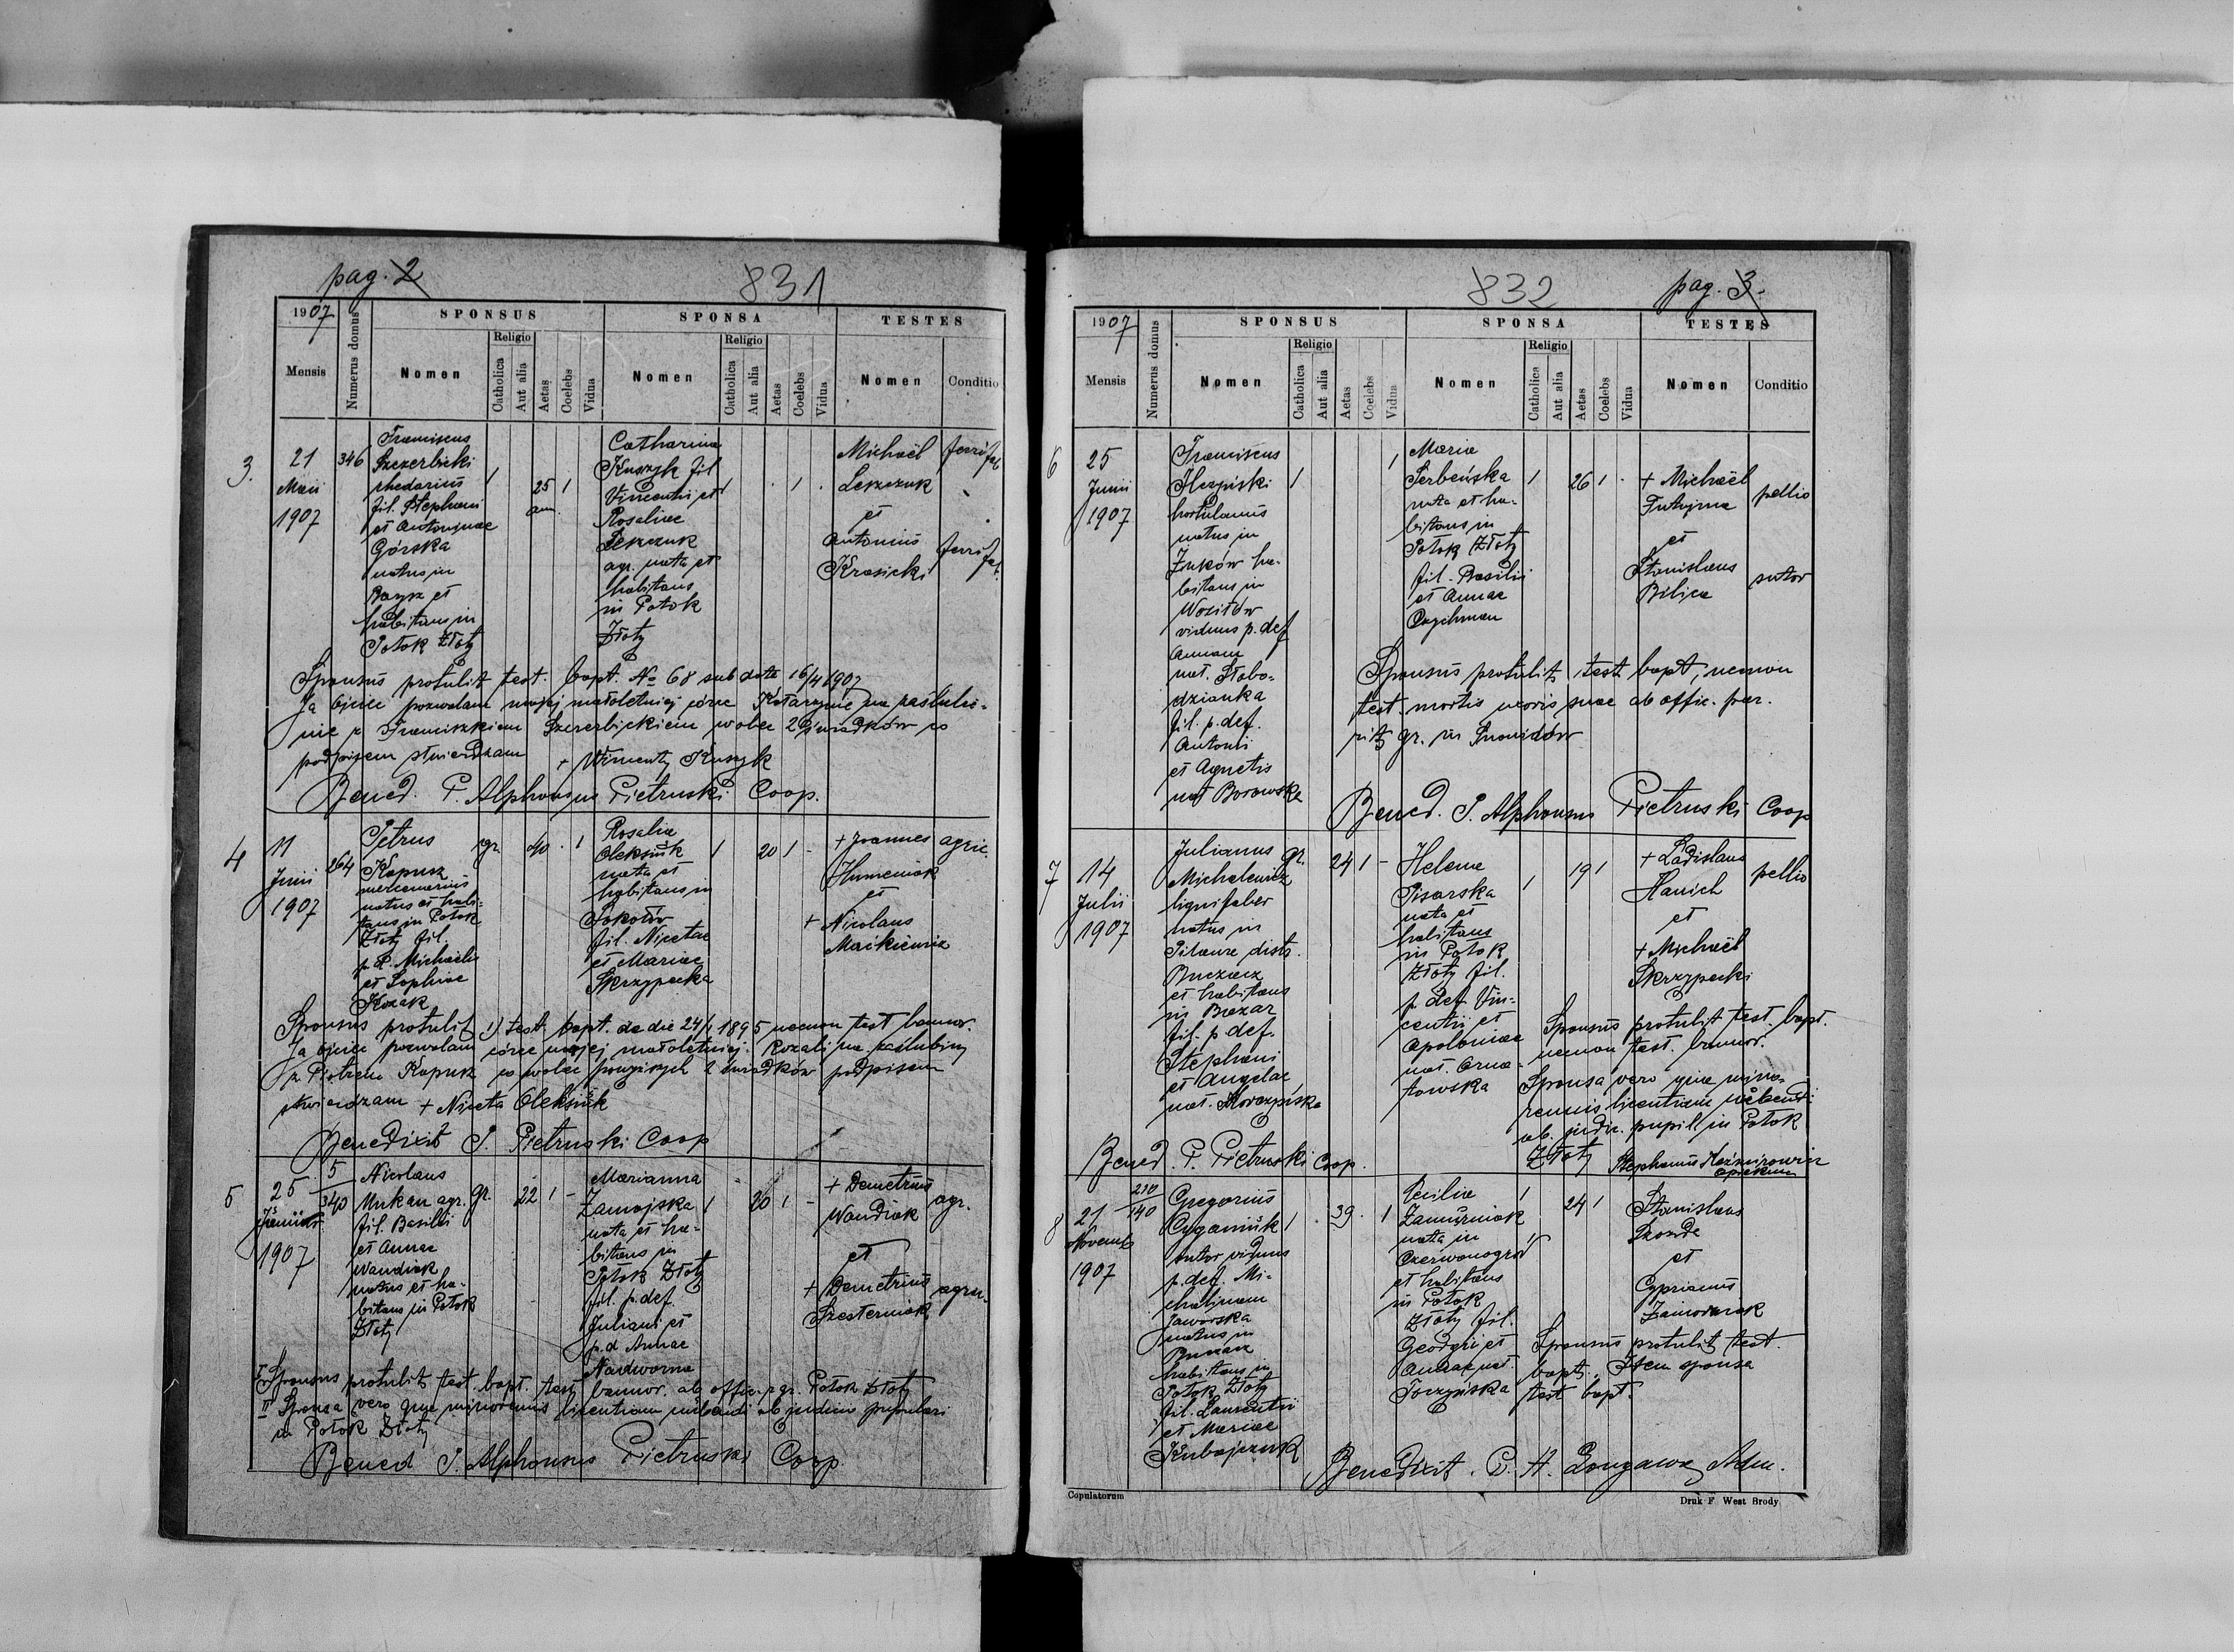 pag. 2
831
1907
Mensis
Numerus domus
SPONSUS
Nomen
Religio
Catholica
Aut alia
Aetas
Coelebs
Vidua
SPONSA
Nomen
Religio
Catholica
Aut alia
Aetas
Coelebs
Vidua
TESTES
Nomen
Conditio
3.
21
Maii
1907
346
Franciscus
Szczerbicki
rhedarius
fil. Stephani
et Antoninae
Górska
natus in
et
habitans in
Potok Złoty
1
25
ann.
1
Catharina
Kuszyk fil
Vincentii et
Rosaliae
Leszczuk
agr. nata et
habitans
in Potok
Złoty
1
1
Michaël
Leszczuk
et
Antonius
Krasicki
ferrifab
ferrifab.
Sponsus protulit test. bapt. No 68 sub dato 16/4 1907
Ja ojciec pozwalam mojej małoletniej córce Katarzynie na zaślubi-
nie z Franciszkiem Szczerbickiem wobec 2 świadków co
podpisem stwierdzam + Wincenty Kuszyk
Bened. P. Alphonsus Pietruski Coop.
4
11
Junii
1907
264
Petrus
Kapusz
mercenarius
natus et habi-
tans in Potok
Złoty fil.
p. d. Michaelis
et Sophiae
Kozak
gr.
40
1
Rosalia
Oleksiuk
nata et
habitans in
Sokołów
fil. Nicetae
et Mariae
Skrzypecka
1
20
1
+ Joannes
Humeniak
et
+ Nicolaus
Maćkiewicz
agric.
Sponsus protulit 1) test. bapt. de die 24/1 1895 necnon test bannor.
Ja ojciec pozwalam córce mojej małoletniej Rozali na zaślubiny
z Piotrem Kapusz co wobec powyższych 2 świadków podpisem
stwierdzam + Niceta Oleksiuk
Benedixit P. Pietruski Coop
5
25
Junii
1907
5
340
Nicolaus
Mukan agr.
fil. Basilii
et Annae
Wandiak
natus et ha-
bitans in Potok
Złoty
gr.
22
1
Marianna
Zamojska
nata et ha-
bitans in
Potok Złoty
fil. p. def.
Juliani et
p. d Annae
Nadworna
1
20
1
+ Demetrius
Wandiak
et
+ Demetrius
Szesterniak
agr.
agric.
I Sponsus protulit test. bapt. test bannor. ab offic. p. gr. Potok Złoty
II Sponsa vero qua minorennis licentiam nubendi ab judicio pupilari
in Potok Złoty
Bened P. Alphonsus Pietruski Coop.
832
pag. 3.
1907
Mensis
Numerus domus
SPONSUS
Nomen
Religio
Catholica
Aut alia
Aetas
Coelebs
Vidua
SPONSA
Nomen
Religio
Catholica
Aut alia
Aetas
Coelebs
Vidua
TESTES
Nomen
Conditio
6
25
Junii
1907
Franciscus
hortulanus
natus in
Żuków ha-
bitans in
Woziłów
viduus p. def
Annam
nat. Słobo-
dzianka
fil. p. def.
Antonii
et Agnetis
nat Borowska
1
1
Maria
Serbeńska
nata et ha-
bitans in
Potok Złoty
fil. Basilii
et Annae
1
26
1
+ Michaël
Futyma
et
Stanislaus
Bilica
pellio
sutor
Sponsus protulit test bapt, necnon
test. mortis uxoris suae ab offic. par.
rit. gr. in Snowidów
Bened. P. Alphonsus Pietruski Coop
7
14
Julii
1907
Julianus
Michalewicz
lignifaber
natus in
Pilawa distr.
Buczacz
et habitans
in
fil. p def.
Stephani
et Angelae
nat.
gr.
24
1
Helena
Pisarska
nata et
habitans
in Potok
Złoty fil.
p def. Vin-
centii et
Apoloniae
nat. Orna-
towska
1
19
1
+ Ladislaus
Hanich
et
+ Michaël
Skrzypecki
pellio
Sponsus protulit test. bapt.
necnon test. bannor.
Sponsa vero qua mino-
rennis licentiam nubendi
ab. judic. pupill in Potok
Złoty Stephanus Kaźmirowicz
opiekun
Bened. P. Pietruski Coop.
8
21
Novemb
1907
210
140
Gregorius
Cyganiuk
sutor viduus
p. def. Mi-
chalinam
Jaworska
natus in
Buczacz
habitans in
Potok Złoty
fil. Laurentii
et Mariae
Kubajczuk
1
39
1
Cecilia
nata in
Czerwonogród
et habitans
in Potok
Złoty fil.
Georgii et
Annae nat.
Toczyńska
1
24
1
Stanislaus
et
Cyprianus
Sponsus protulit test.
bapt. Item sponsa
test bapt.
Benedixit. P. H. Adm.
Copulatorum
Druk F West Brody